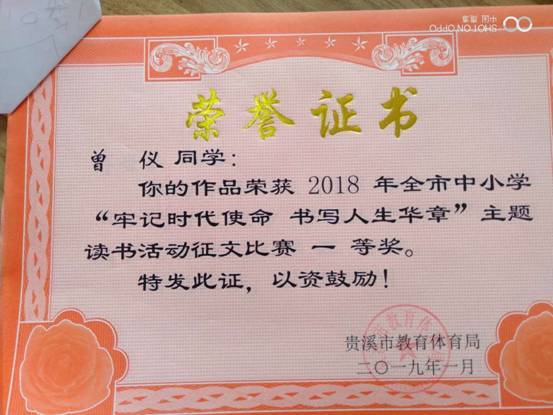 荣誉证书
曾 仪 同学：
你的作品荣获 2018 年全市中小学
“牢记时代使命 书写人生华章”主题
读书活动征文比赛 一 等奖。
特发此证，以资鼓励！
贵溪市教育体育局
二〇一九年一月
SHOT ON OPPO